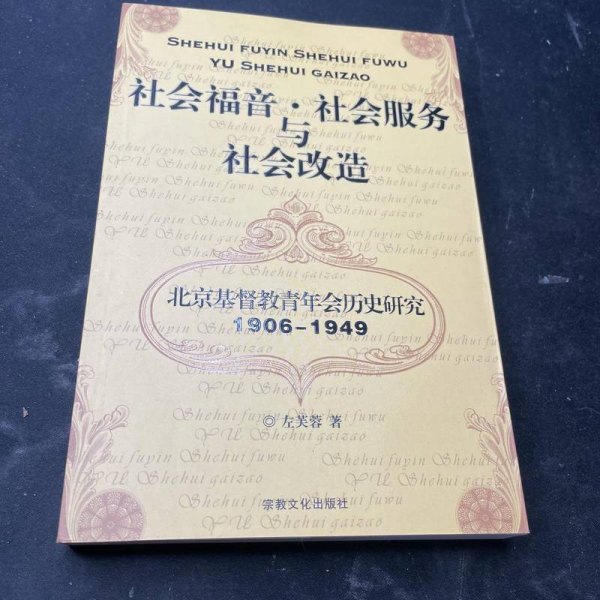 SHEHUI FUYIN SHEHUI FUWU
YU SHEHUI GAIZAO
社会福音·社会服务
与
社会改造
北京基督教青年会历史研究
1906-1949
◎ 左芙蓉 著
宗教文化出版社